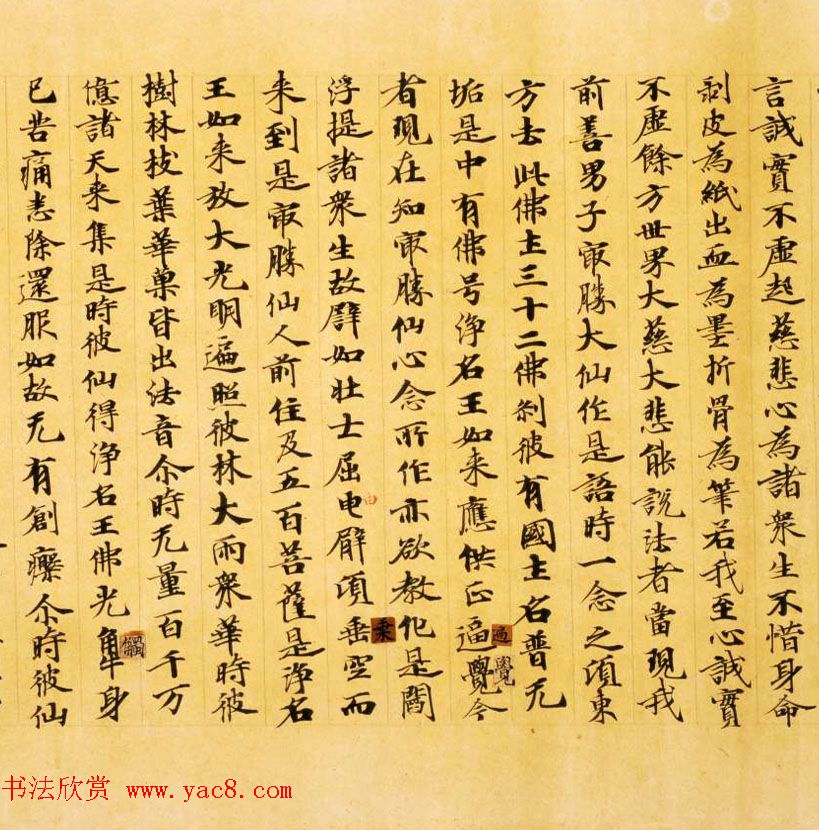 言誠實不虛起慈悲心為諸衆生不惜身命
剥皮為紙出血為墨折骨為筆若我至心誠實
不虛餘方世界大慈大悲能說法者當現我
前善男子㝡勝大仙作是語時一念之須東
方去此佛土三十二佛刹彼有國土名普无
垢是中有佛号淨名王如来應供正遍覺今
者現在知㝡勝仙心念所作亦欲教化是閻
浮提諸衆生故譬如壮士屈申臂項乗空而
来到是㝡勝仙人前住及五百菩薩是淨名
王如来放大光明遍照彼林大雨衆華時彼
樹林枝葉華菓皆出法音尒時无量百千万
億諸天来集是時彼仙得淨名王佛光觸身
已苦痛悉除還服如故无有創癳尒時彼仙
遍
覺
乗
由
觸
书法欣赏 www.yac8.com